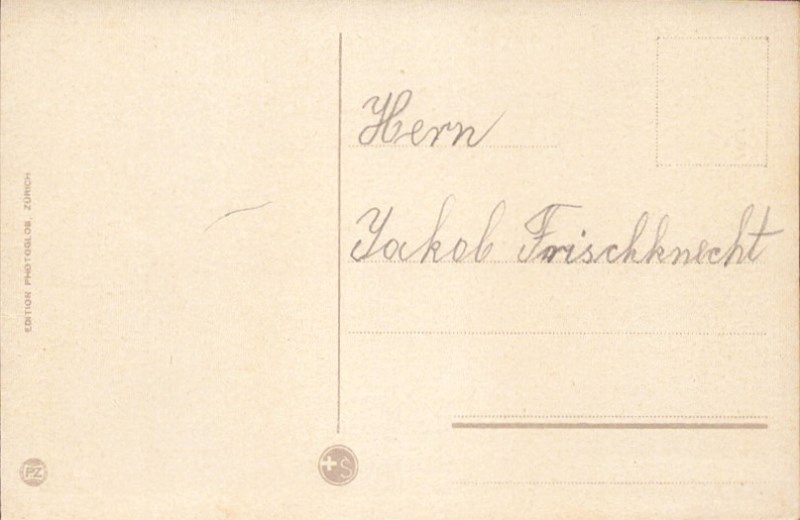 Hern
Jakob Frischknecht
EDITION PHOTOGLOB, ZÜRICH
PZ
+S